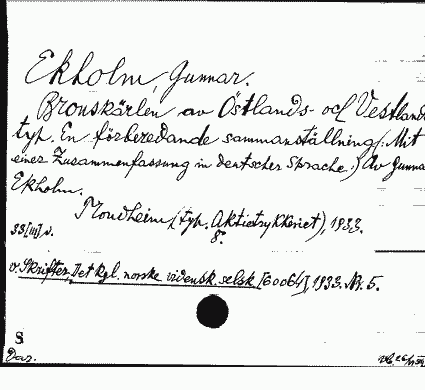 Ekholm, Gunnar.
Bronskärlen av Östlands- och Vestlands-
typ. En förberedande sammanställning. (Mit
einer Zusammenfassung in deutscher Sprache.) Av Gunnar
Ekholm.
Trondheim (typ. Aktietrykkeriet), 1933.
33 [III] s. 8:
v. Skrifter, Det kgl. norske vidensk. selsk. [60064], 1933. Nr. 5.
S.
Dar.